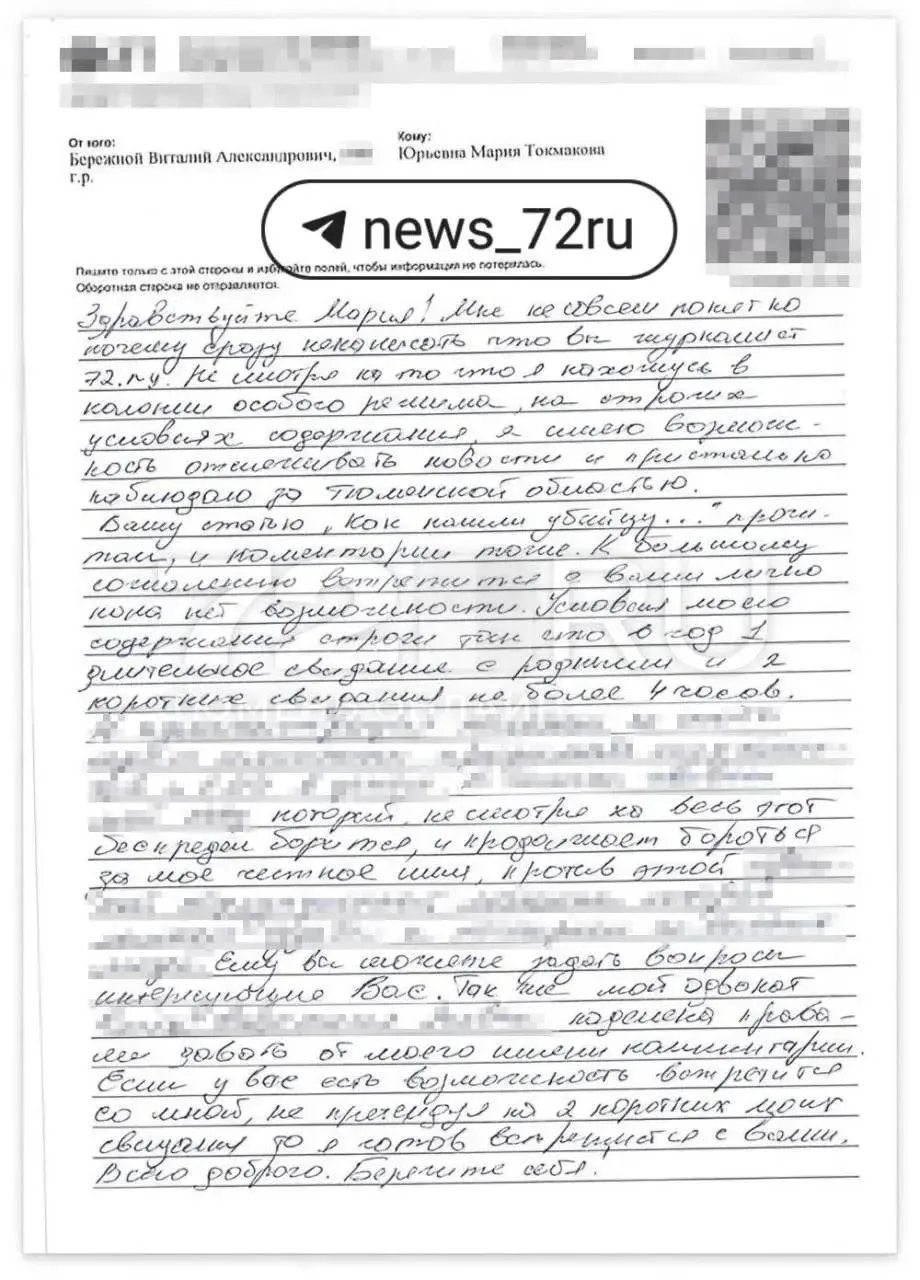 От кого:
Бережной Виталий Александрович,
г.р.
Кому:
Юрьевна Мария Токмакова
news_72ru
Пишите только с этой стороны и избегайте полей, чтобы информация не потерялась.
Оборотная сторона не отправляется.
Здравствуйте Мария! Мне не совсем понятно
почему сразу ненаписать что вы журналист
72.ру. Не смотря на то что я нахожусь в
колонии особого режима, на строгих
условиях содержания, я имею возмож-
ность отслеживать новости и пристально
наблюдаю за Тюменской областью.
Вашу статью „Как нашли убийцу..." прочи-
тал, и коментарии тоже. К большому
сожалению встретится с вами лично
пока нет возможности. Условия моего
содержания строги так что в год 1
длительное свидание с родными и 2
коротких свидания не более 4 часов.
который, не смотря на весь этот
беспредел борится, и продолжает бороться
за моё честное имя, против этой
Ему вы можете задать вопросы
интересующие Вас. Так же мой адвокат
наделена права-
ми давать от моего имени комментарии.
Если у вас есть возможность встретится
со мной, не претендуя на 2 коротких моих
свидания то я готов встретится с вами.
Всего доброго. Берегите себя!